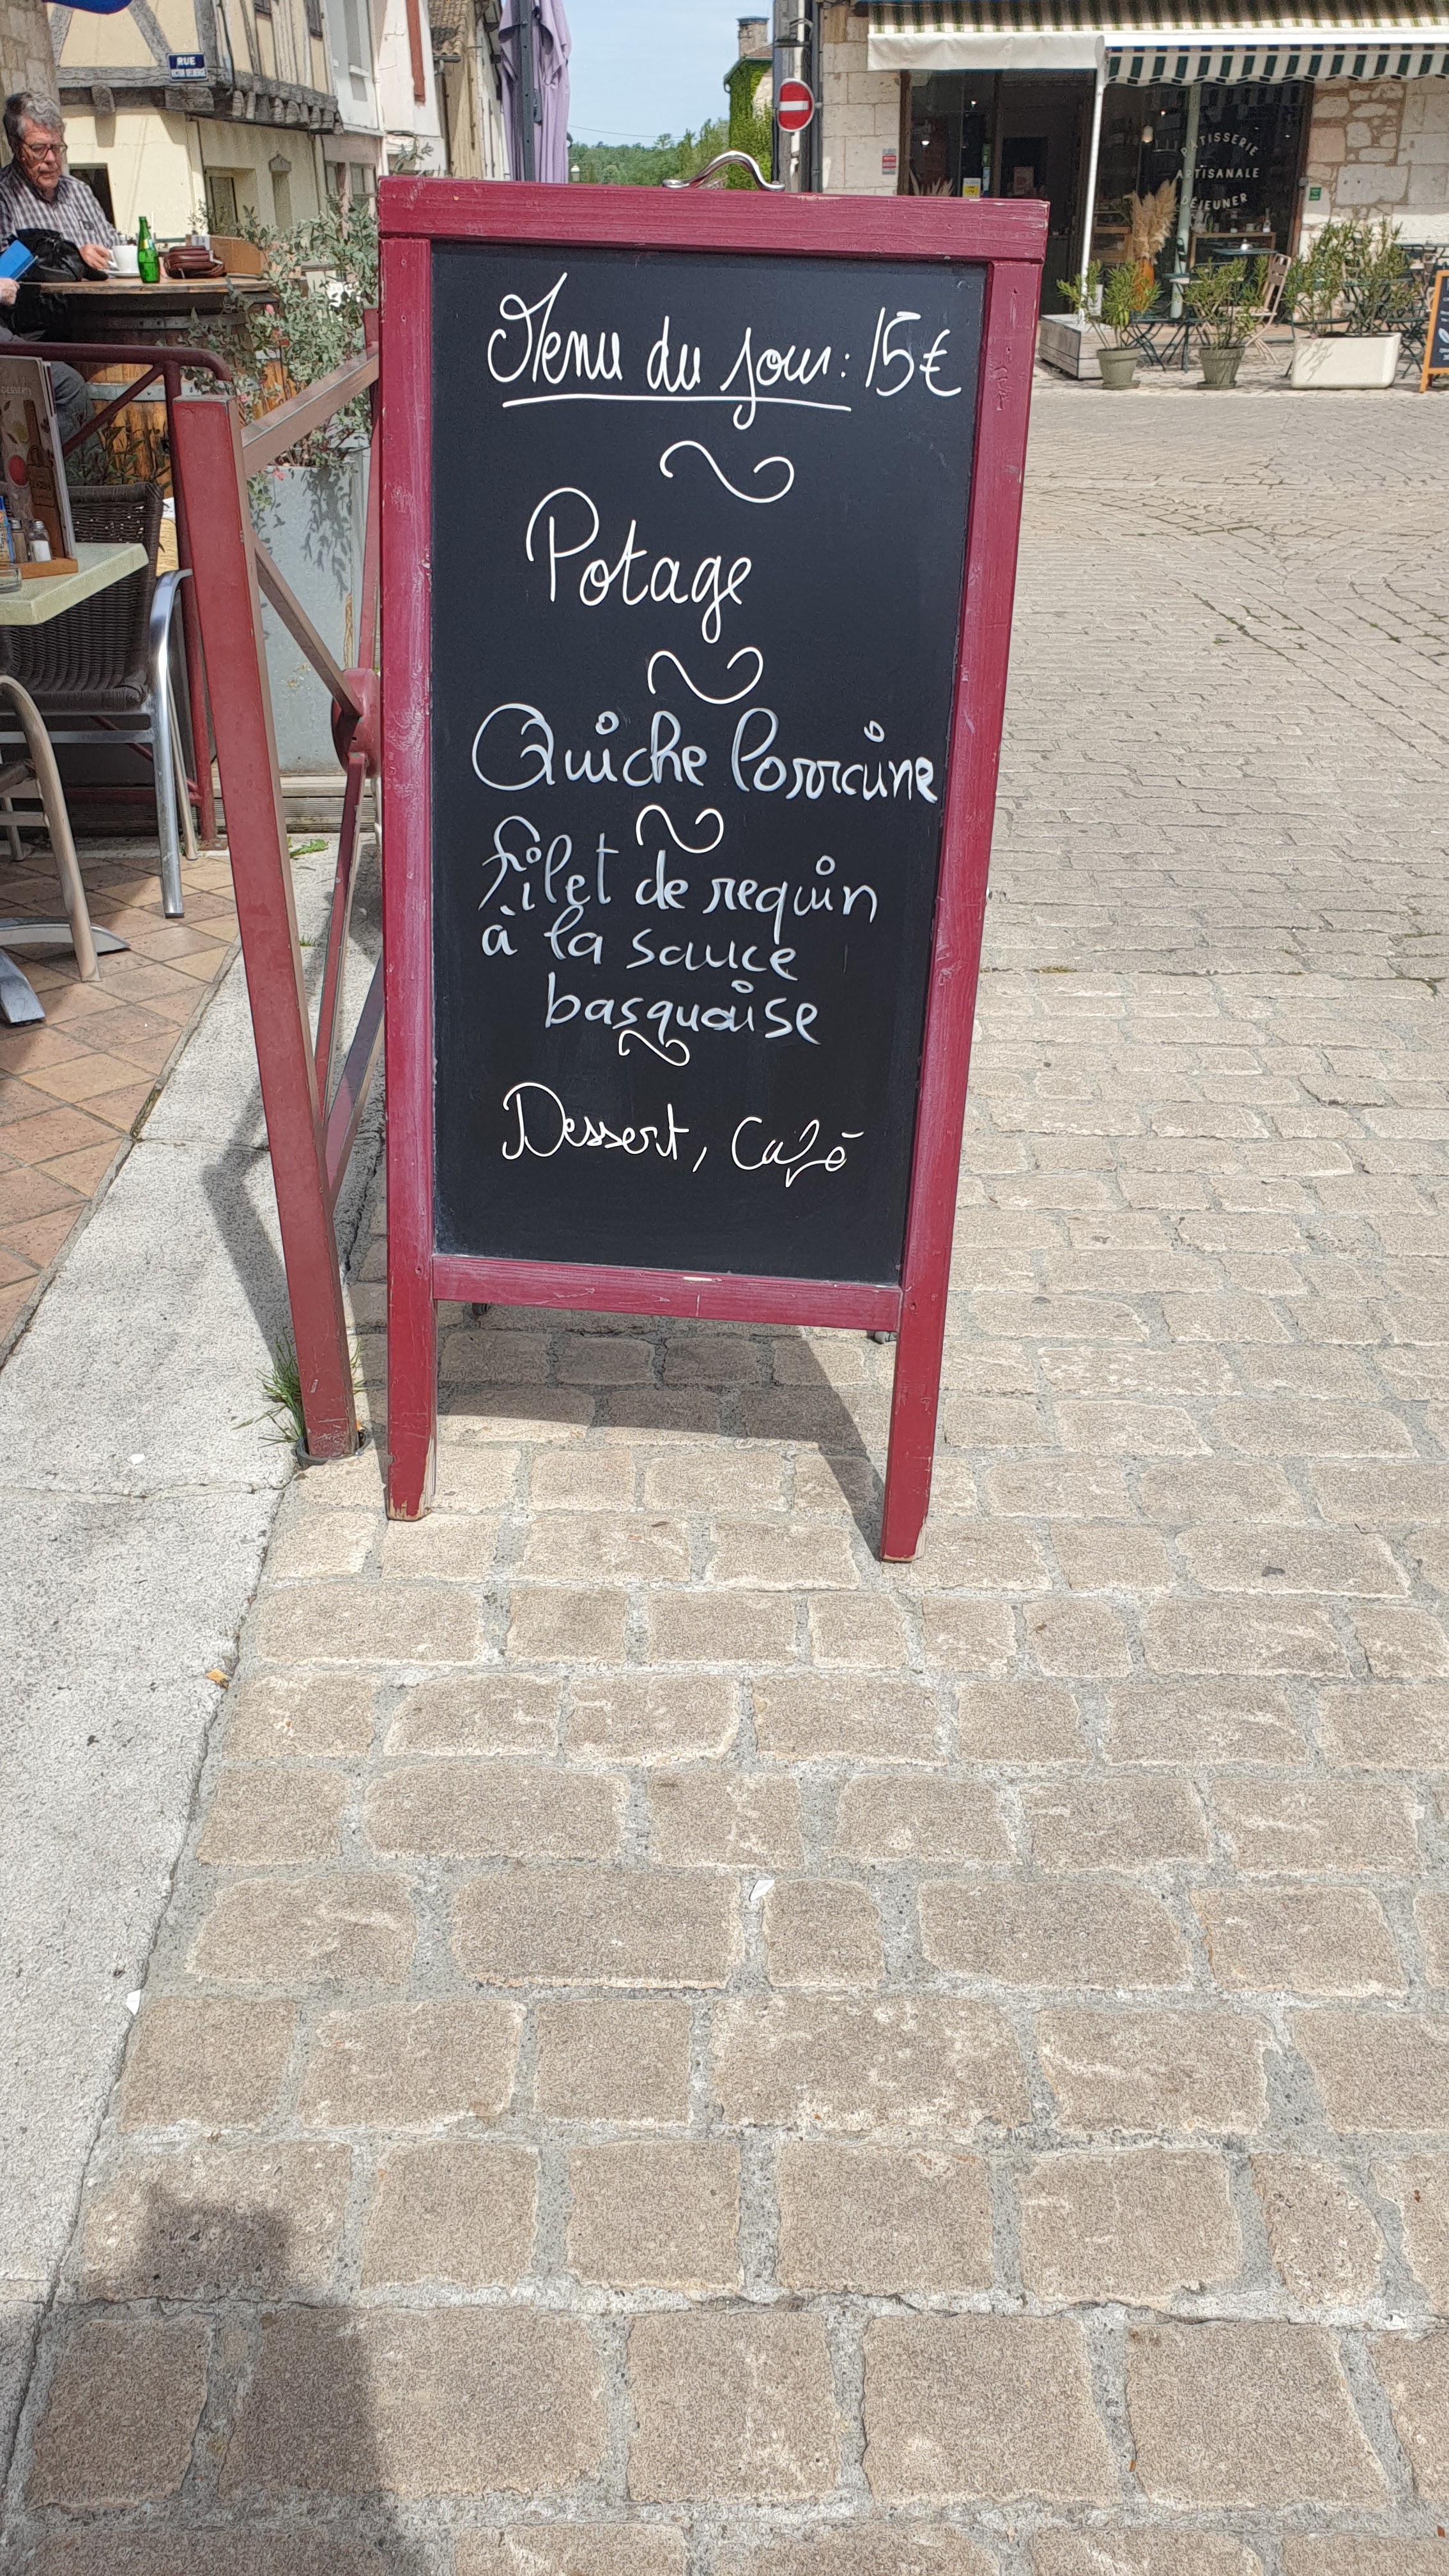 RUE
PATISSERIE
ARTISANALE
DEJEUNER
DESSERTS
Menu du jour : 15€
Potage
Quiche lorraine
filet de requin
à la sauce
basquaise
Dessert, Café